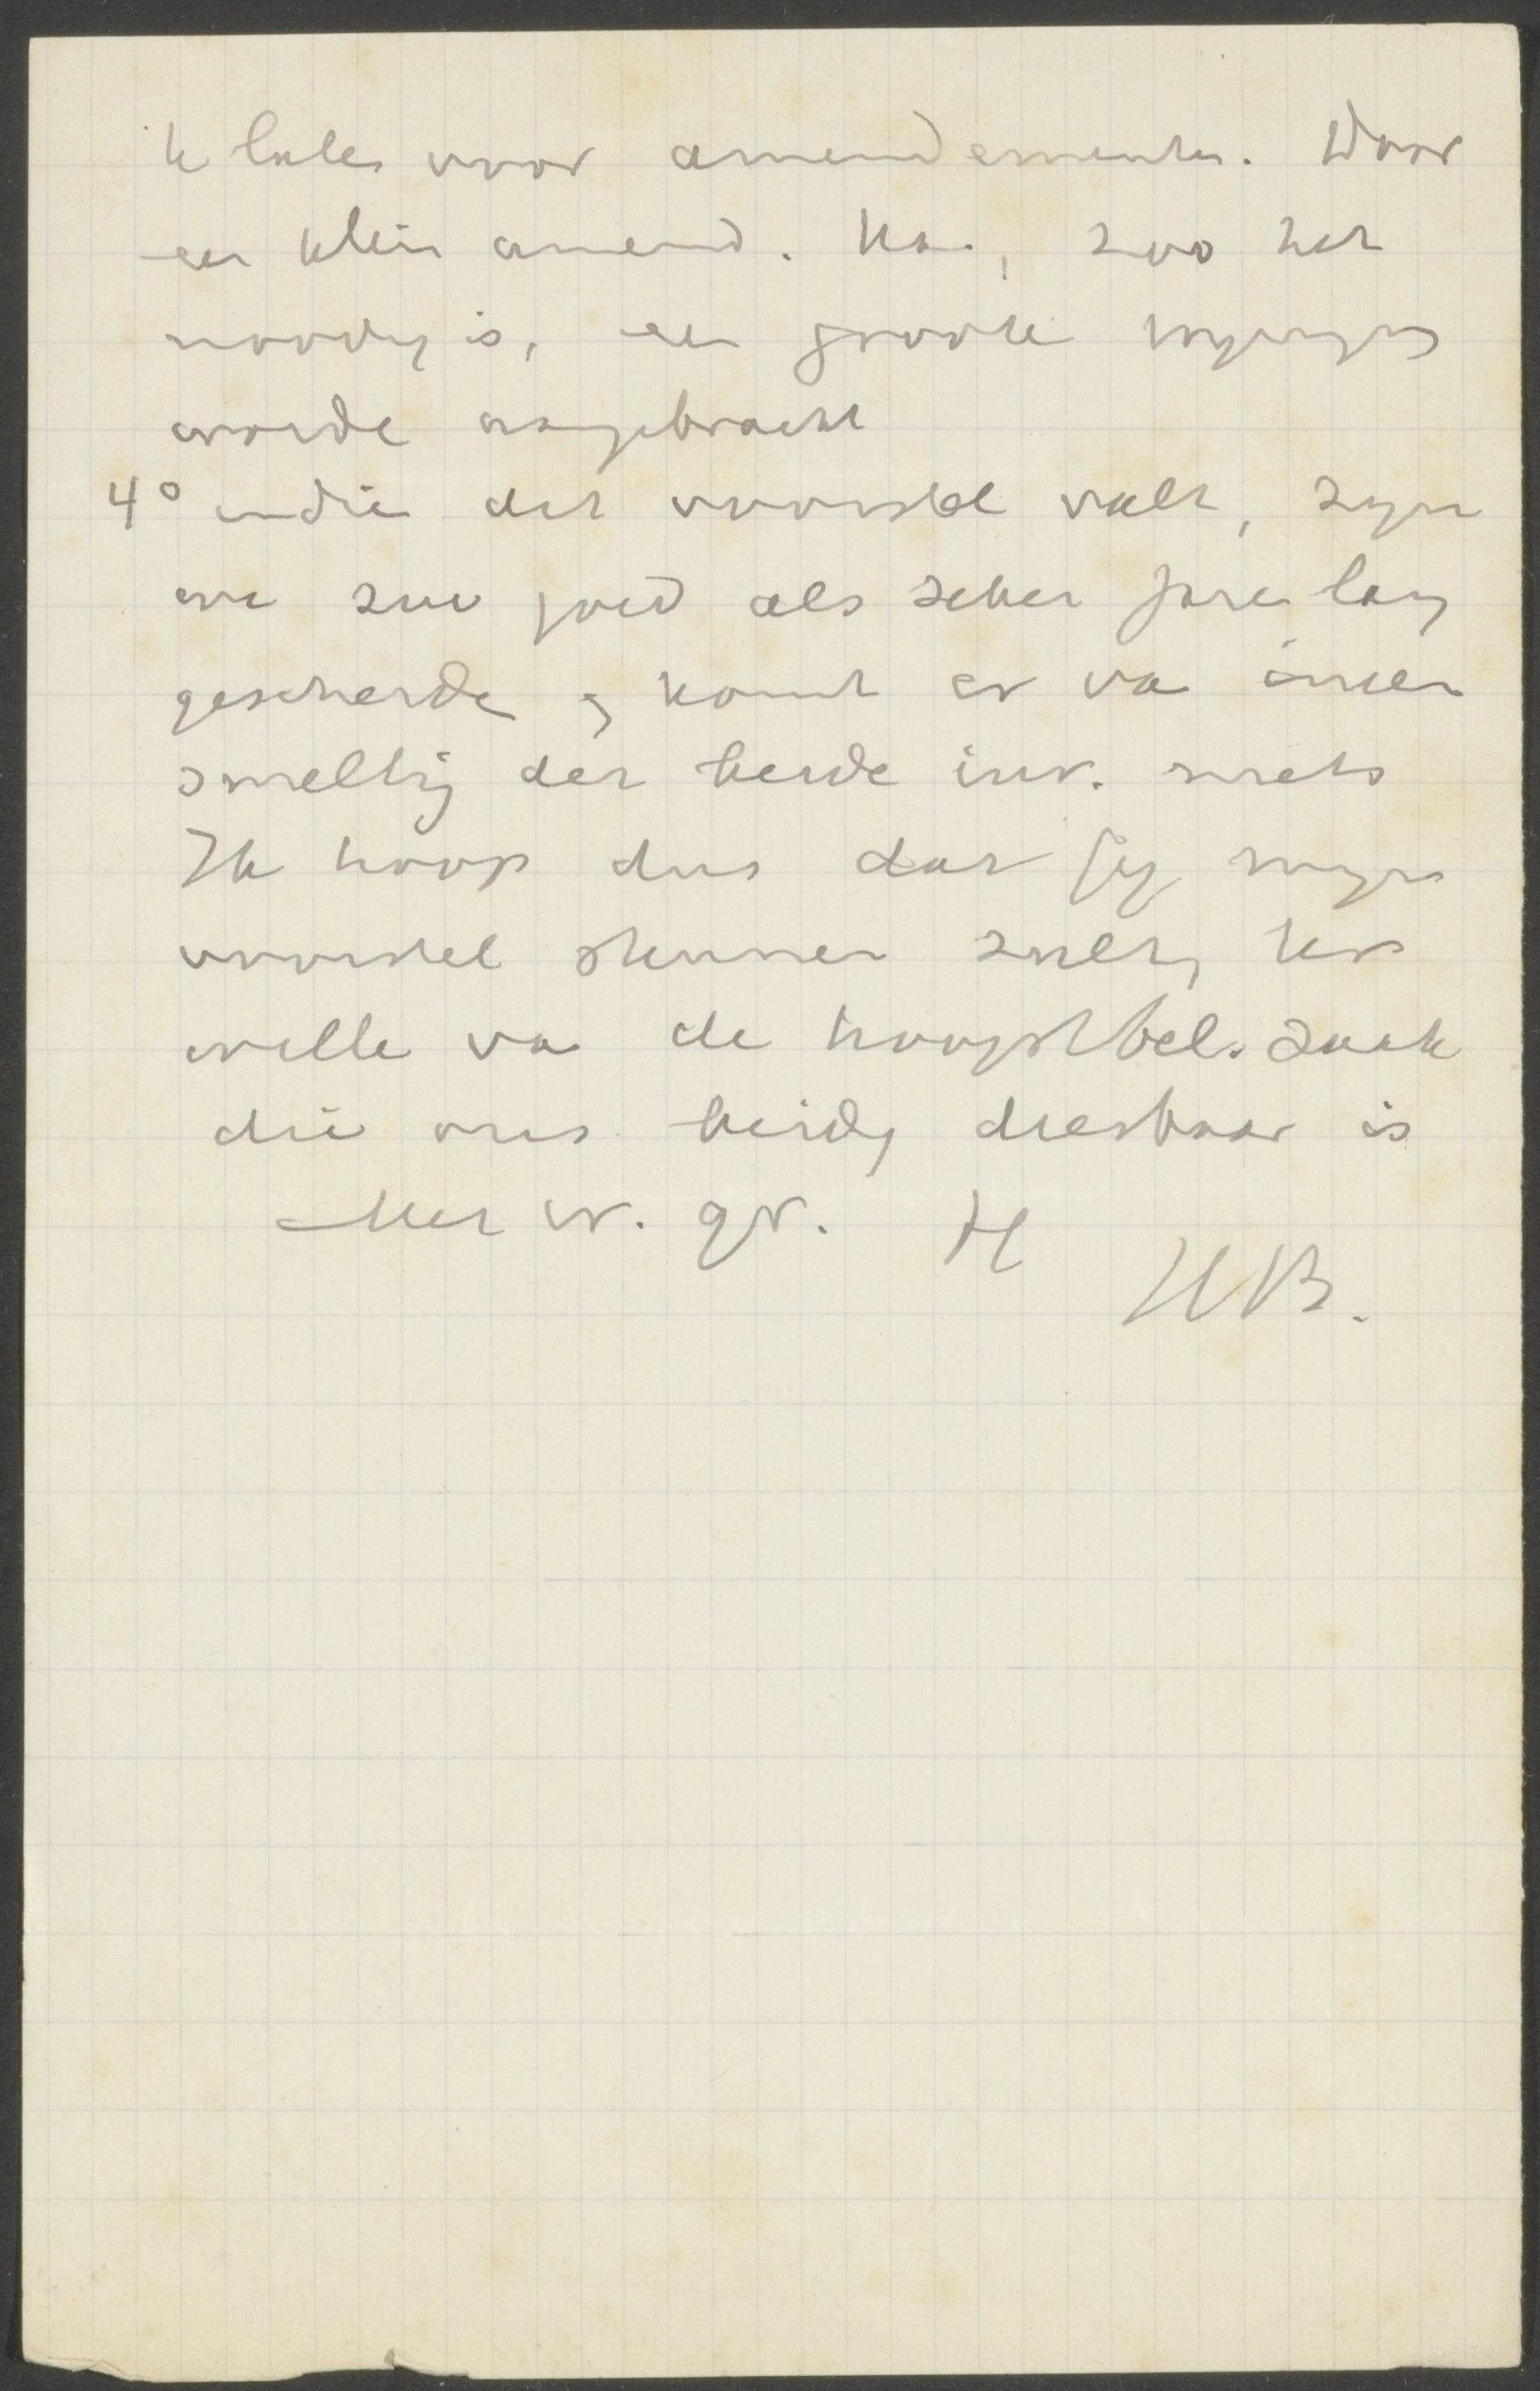 te laten voor amendementen. Door
een klein amend. kan, zoo het
noodig is, een groote wijziging
worde aangebracht
4° indien dit voorstel valt, zijn
we zoo goed als zeker jaren lang
gescheide, komt er van ineen
smelting der beide inr. niets
Ik hoop dus dat jij mijn
voorstel steunen zult, ter
wille van de hoogst bel. zaak
die ons beide dierbaar is
Met vr. gr. H
HPB.